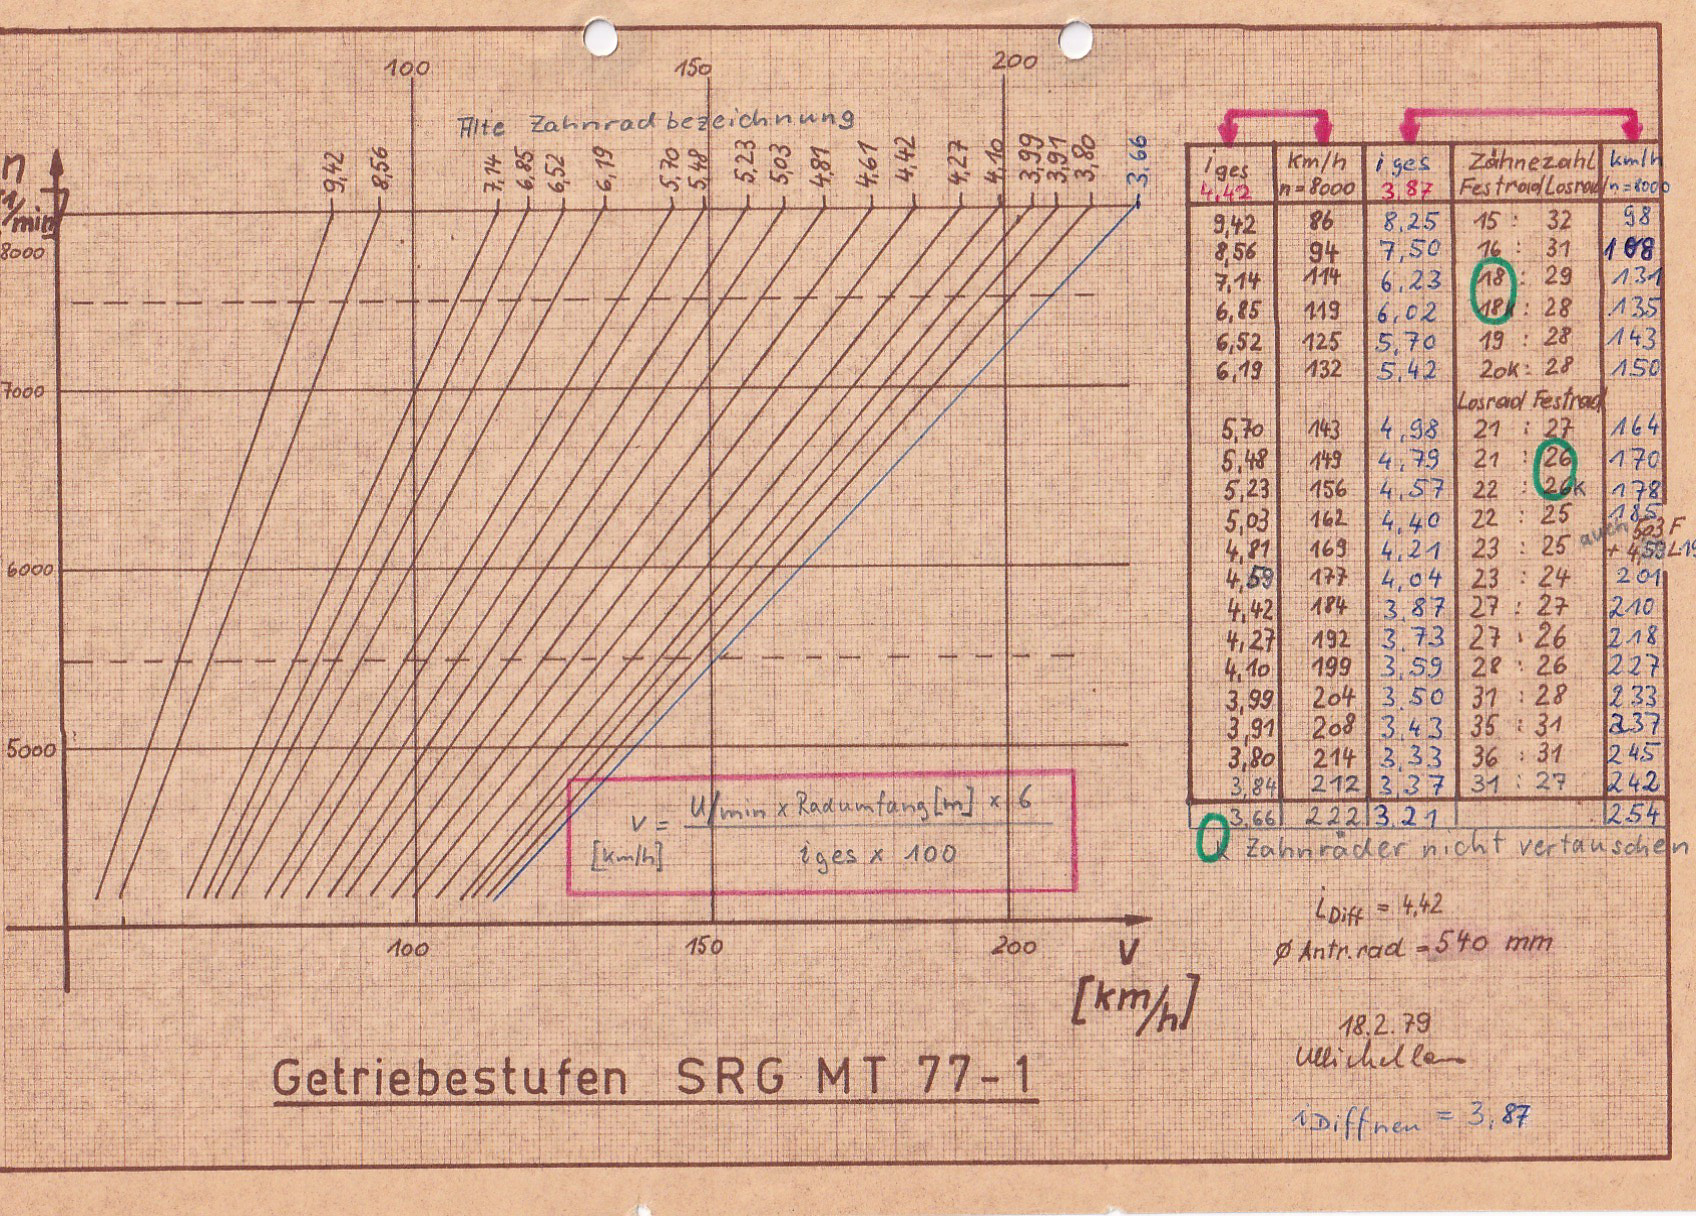 100 150 200
Alte Zahnradbezeichnung
n
[1/min]
9,42 8,56 7,14 6,85 6,52 6,19 5,70 5,48 5,23 5,03 4,81 4,61 4,42 4,27 4,10 3,99 3,91 3,80 3,66
8000
7000
6000
5000
100 150 200
v
[km/h]
v = U/min x Radumfang[m] x 6
[km/h] iges x 100
iges km/h iges Zähnezahl km/h
4,42 n=8000 3,87 Festrad/Losrad n=8000
9,42 86 8,25 15 : 32 98
8,56 94 7,50 16 : 31 108
7,14 114 6,23 18 : 29 131
6,85 119 6,02 18k : 28 135
6,52 125 5,70 19 : 28 143
6,19 132 5,42 20k : 28 150
Losrad Festrad
5,70 143 4,98 21 : 27 164
5,48 149 4,79 21 : 26 170
5,23 156 4,57 22 : 26k 178
5,03 162 4,40 22 : 25 185
auch 503 F
4,81 169 4,21 23 : 25 + 4,59 L
4,59 177 4,04 23 : 24 201
4,42 184 3,87 27 : 27 210
4,27 192 3,73 27 : 26 218
4,10 199 3,59 28 : 26 227
3,99 204 3,50 31 : 28 233
3,91 208 3,43 35 : 31 237
3,80 214 3,33 36 : 31 245
3,84 212 3,37 31 : 27 242
3,66 222 3,21 254
k Zahnräder nicht vertauschen
iDiff = 4,42
Ø Antr.rad = 540 mm
18.2.79
iDiffneu = 3,87
Getriebestufen SRG MT 77-1